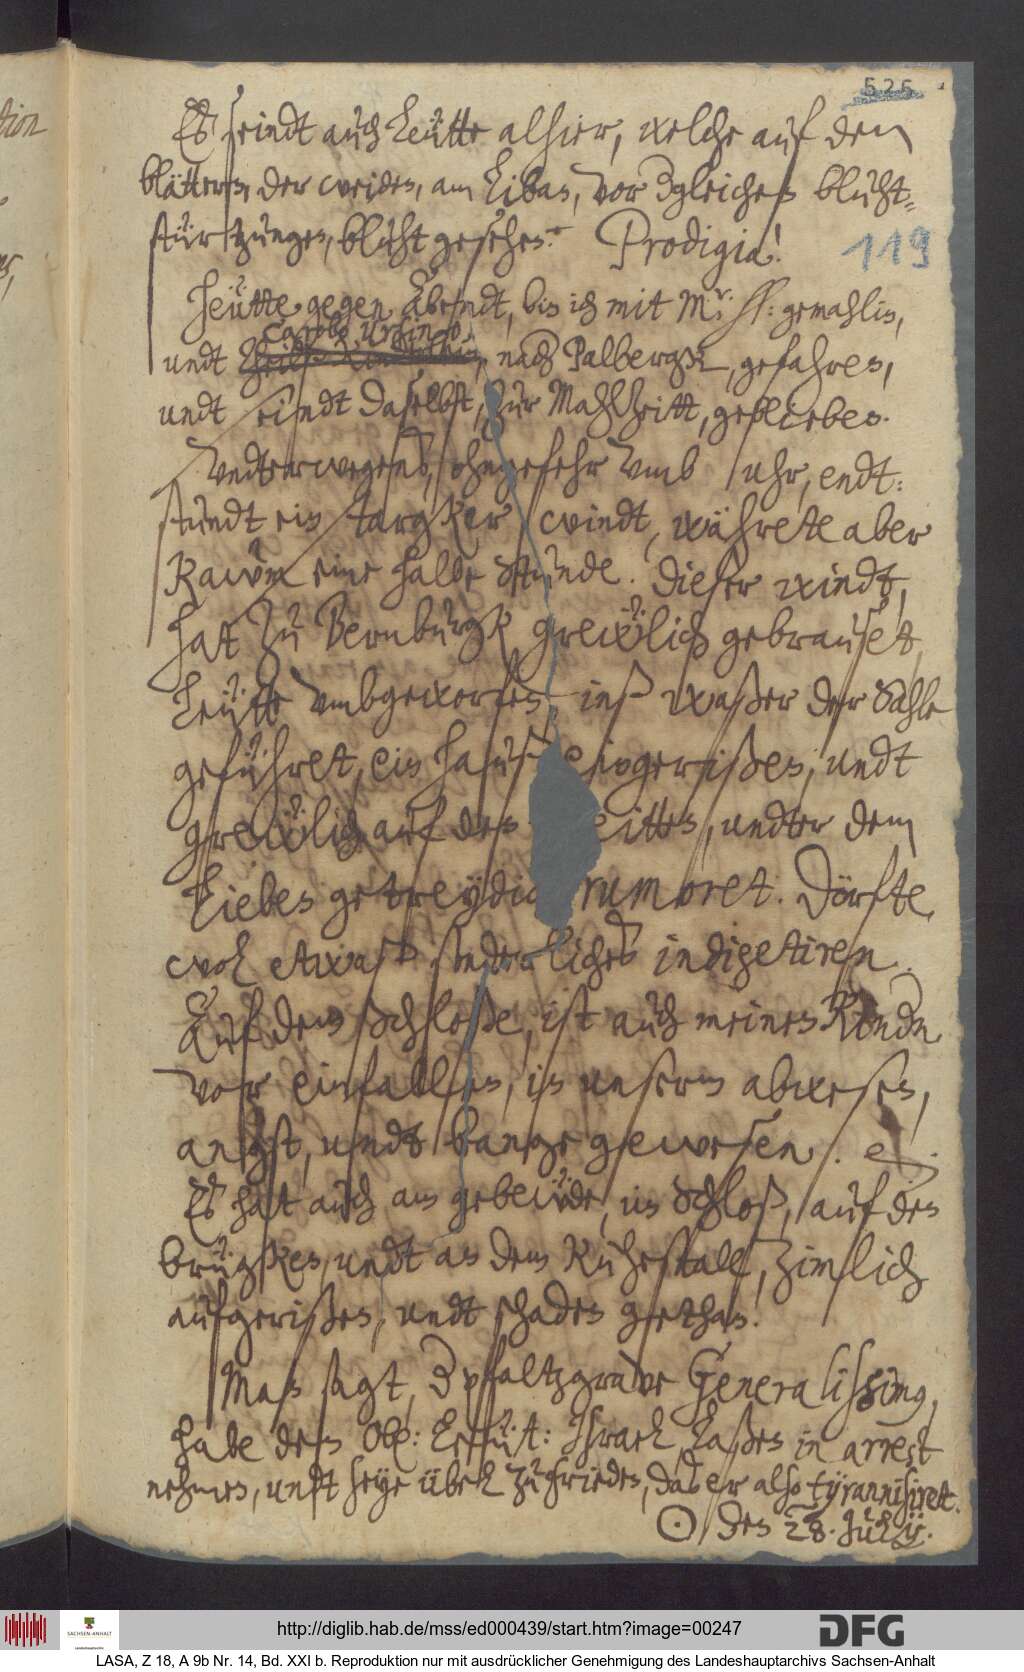 525
Es seindt auch Leütte alhier, welche auf den
blättern, der weiden, am Liban, vor dergleichen bluht-
stürtzungen, bluht gesehen. Prodigia!
119
Heütte gegen Abendt, bin ich mit Mr: fr: gemahlin,
Carolo Ursino,
undt nach Palbergk, gefahren,
undt seindt daselbst, zur Mahlzeitt, geblieben.
Vndterwegens, ohngefehr vmb uhr, endt:
stundt ein starcker windt, währete aber
kaum eine halbe stunde. Dieser windt,
hat zu Bernburgk grewlich gebrauset,
Leütte vmbgeworfen inß waßer der Sahle
geführet, ein hauß eingerißen, undt
grewlich auf den undter dem
Lieben getreydig rumoret. Dörfte
wol etwaß sonderliches indigetiren.
Auf dem Schloße, ist auch meinen Kindn
vor einfallen, in unserm abwesen,
angst, undt bange gewesen. et
Es hat auch am gebeüde, im Schloß, auf den
brügken, undt an dem Kuhestall, zimlich
aufgerißen, undt schaden gethan.
Man sagt, der pfaltzgrave Generalissimus,
habe den Ob: Leüt: Israel, Laßen in arrest
nehmen, undt seye übel zufrieden, daß er also tyrannisiret.
☉ den 28. July.
http://diglib.hab.de/mss/ed000439/start.htm?image=00247
DFG
SACHSEN-ANHALT
LASA, Z 18, A 9b Nr. 14, Bd. XXI b. Reproduktion nur mit ausdrücklicher Genehmigung des Landeshauptarchivs Sachsen-Anhalt